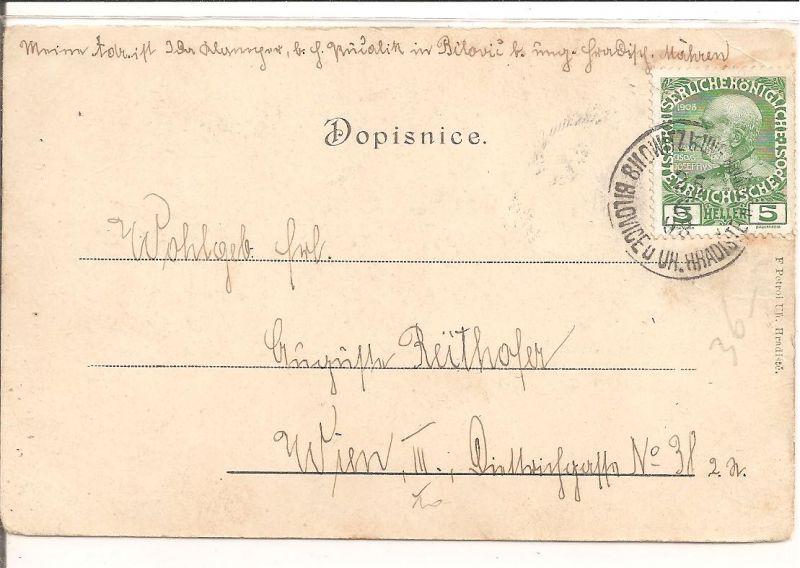 Meine Adr. ist Ida Klamper, b. H. Pučalik in Bilovic b. ung. Hradisch. Mähren
Dopisnice.
1908
KAISERLICHE KÖNIGLICHE ÖSTERREICHISCHE POST
5 HELLER 5
BILOWITZ b. UNG.
BILOVICE u UH. HRADIŠTĚ
Wohlgeb. Frl.
Auguste Reithofer
Wien, III., Dietrichgasse No 38
36
F Petrol Uh. Hradiště.